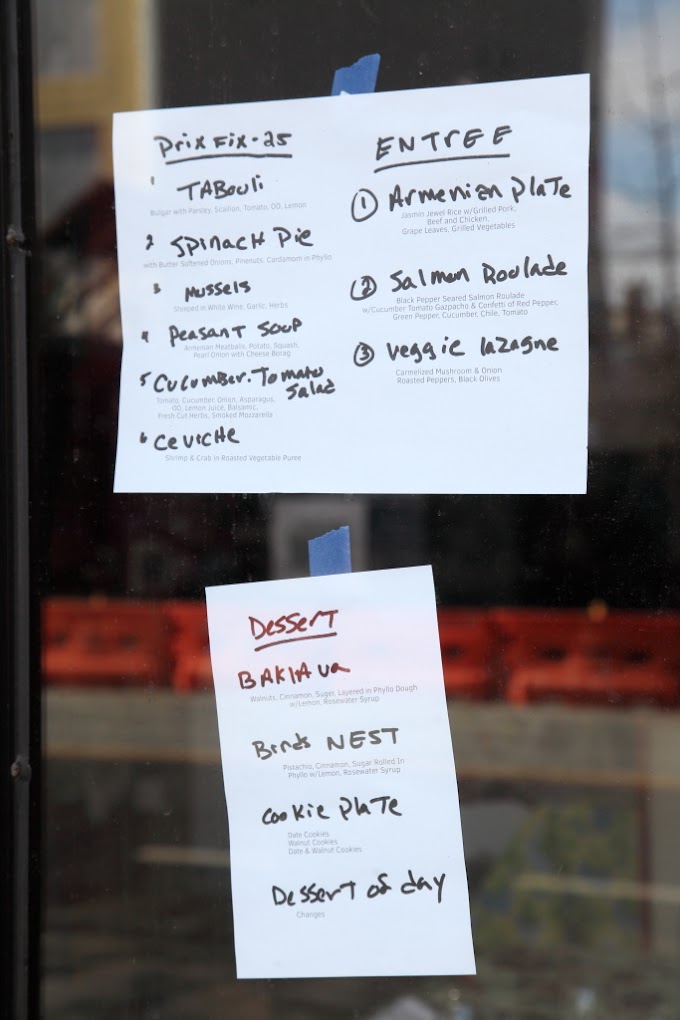 Prix Fix - 25
1 TABouli
Bulgar with Parsley, Scallion, Tomato, OO, Lemon
2 SPinacH Pie
with Butter Softened Onions, Pinenuts, Cardamom in Phyllo
3 Mussels
Steeped in White Wine, Garlic, Herbs
4 Peasant Soup
Armenian Meatballs, Potato, Squash,
Pearl Onion with Cheese Borag
5 Cucumber. Tomato
Salad
Tomato, Cucumber, Onion, Asparagus,
OO, Lemon Juice, Balsamic,
Fresh Cut Herbs, Smoked Mozzarella
6 CeviCHe
Shrimp & Crab in Roasted Vegetable Puree
ENTREE
1 Armenian Plate
Jasmin Jewel Rice w/Grilled Pork,
Beef and Chicken,
Grape Leaves, Grilled Vegetables
2 Salmon Roulade
Black Pepper Seared Salmon Roulade
w/Cucumber Tomato Gazpacho & Confetti of Red Pepper,
Green Pepper, Cucumber, Chile, Tomato
3 Veggie lazagne
Carmelized Mushroom & Onion
Roasted Peppers, Black Olives
DesserT
BAKlAva
Walnuts, Cinnamon, Suger, Layered in Phyllo Dough
w/Lemon, Rosewater Syrup
Birds NEST
Pistachio, Cinnamon, Sugar Rolled In
Phyllo w/Lemon, Rosewater Syrup
Cookie Plate
Date Cookies
Walnut Cookies
Date & Walnut Cookies
DesserT of day
Changes